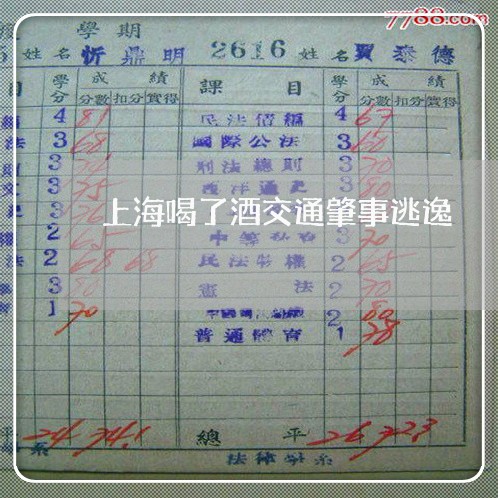 7788.com
學期
姓名 忻鼎明 2616 姓名 賈泰德
目 學分 成績 課目 學分 成績
分數 扣分 實得 分數 扣分 實得
4 81 民法債編 4 67
法 3 68 國際公法 3 60
3 刑法總則 3 70
3 75 西洋通史 3 80
上海喝了酒交通肇事逃逸
2 65 3 70
法 2 68 68 民法物權 2 65
3 80 憲法 2 70
1 70 2 80
普通體育 1 78
平 24 74.1 總平 26 72.3
系 法律學系